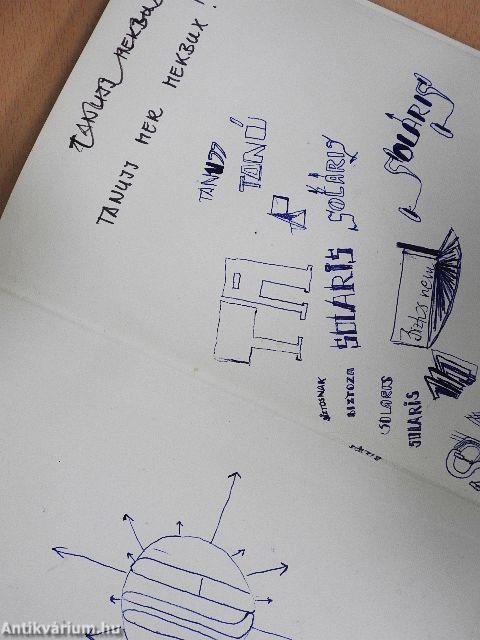 TANUJJ MEKBUX
TANUJJ MER MEKBUX !
TANUJJ
TANÚ
SOLARIS
SOLARIS
SOLARIS
Biztos nem
BIZTOZA
SOLARIS
SOLARIS
Antikvárium.hu